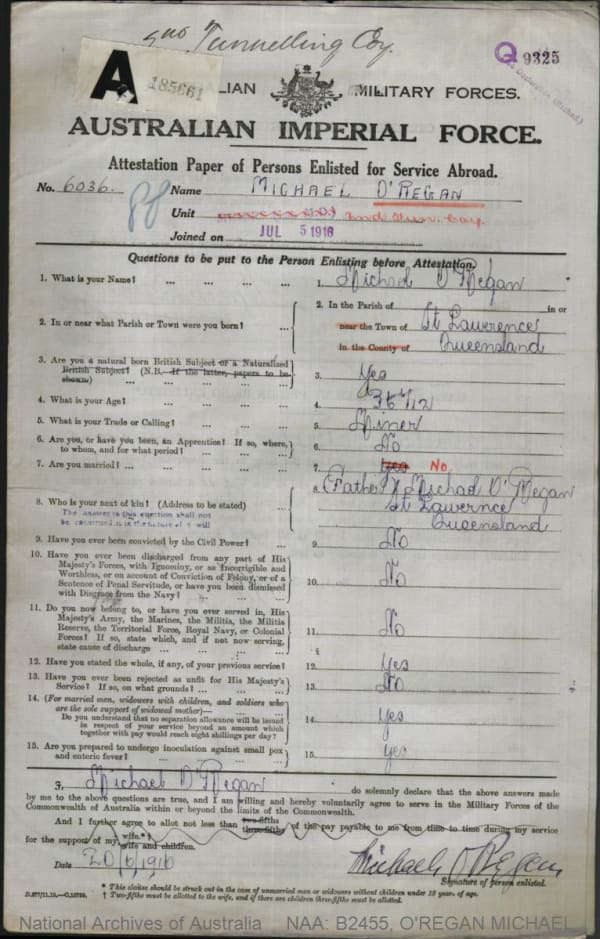 2nd Tunnelling Coy.
Q 9325
A 185661
LIAN MILITARY FORCES.
AUSTRALIAN IMPERIAL FORCE.
Attestation Paper of Persons Enlisted for Service Abroad.
No. 6036. Name MICHAEL O'REGAN
Unit 2nd Tun. Coy.
Joined on JUL 5 1916
Questions to be put to the Person Enlisting before Attestation.
1. What is your Name? ... ... ... 1. Michael O'Regan
2. In or near what Parish or Town were you born? ... 2. In the Parish of in or
near the Town of St Lawerence
in the County of Queensland
3. Are you a natural born British Subject or a Naturalized
British Subject? (N.B.—If the latter, papers to be
shown.) ... ... ... ... 3. Yes
4. What is your Age? ... ... ... ... 4. 36 4/12
5. What is your Trade or Calling? ... ... ... 5. Miner
6. Are you, or have you been, an Apprentice? If so, where,
to whom, and for what period? ... ... ... 6. No
7. Are you married? ... ... ... ... 7. Yes No.
8. Who is your next of kin? (Address to be stated) ... 8. (Father) Michael O'Regan
The answer to this question shall not
be construed as in the nature of a will
St Lawernce
Queensland
9. Have you ever been convicted by the Civil Power? ... 9. No
10. Have you ever been discharged from any part of His
Majesty's Forces, with Ignominy, or as Incorrigible and
Worthless, or on account of Conviction of Felony, or of a
Sentence of Penal Servitude, or have you been dismissed
with Disgrace from the Navy? ... ... 10. No
11. Do you now belong to, or have you ever served in, His
Majesty's Army, the Marines, the Militia, the Militia
Reserve, the Territorial Force, Royal Navy, or Colonial
Forces? If so, state which, and if not now serving,
state cause of discharge ... ... ... 11. No
12. Have you stated the whole, if any, of your previous service? 12. Yes
13. Have you ever been rejected as unfit for His Majesty's
Service? If so, on what grounds? ... ... ... 13. No
14. (For married men, widowers with children, and soldiers who
are the sole support of widowed mother)—
Do you understand that no separation allowance will be issued
in respect of your service beyond an amount which
together with pay would reach eight shillings per day? 14. Yes
15. Are you prepared to undergo inoculation against small pox
and enteric fever? ... ... ... ... 15. Yes
I, Michael O'Regan do solemnly declare that the above answers made
by me to the above questions are true, and I am willing and hereby voluntarily agree to serve in the Military Forces of the
Commonwealth of Australia within or beyond the limits of the Commonwealth.
And I further agree to allot not less than two-fifths
three-fifths of the pay payable to me from time to time during my service
for the support of my wife.*†
wife and children.
Date 20/6/1916 Michael O'Regan
Signature of person enlisted.
* This clause should be struck out in the case of unmarried men or widowers without children under 18 years of age.
† Two-fifths must be allotted to the wife, and if there are children three-fifths must be allotted.
National Archives of Australia NAA: B2455, O'REGAN MICHAEL